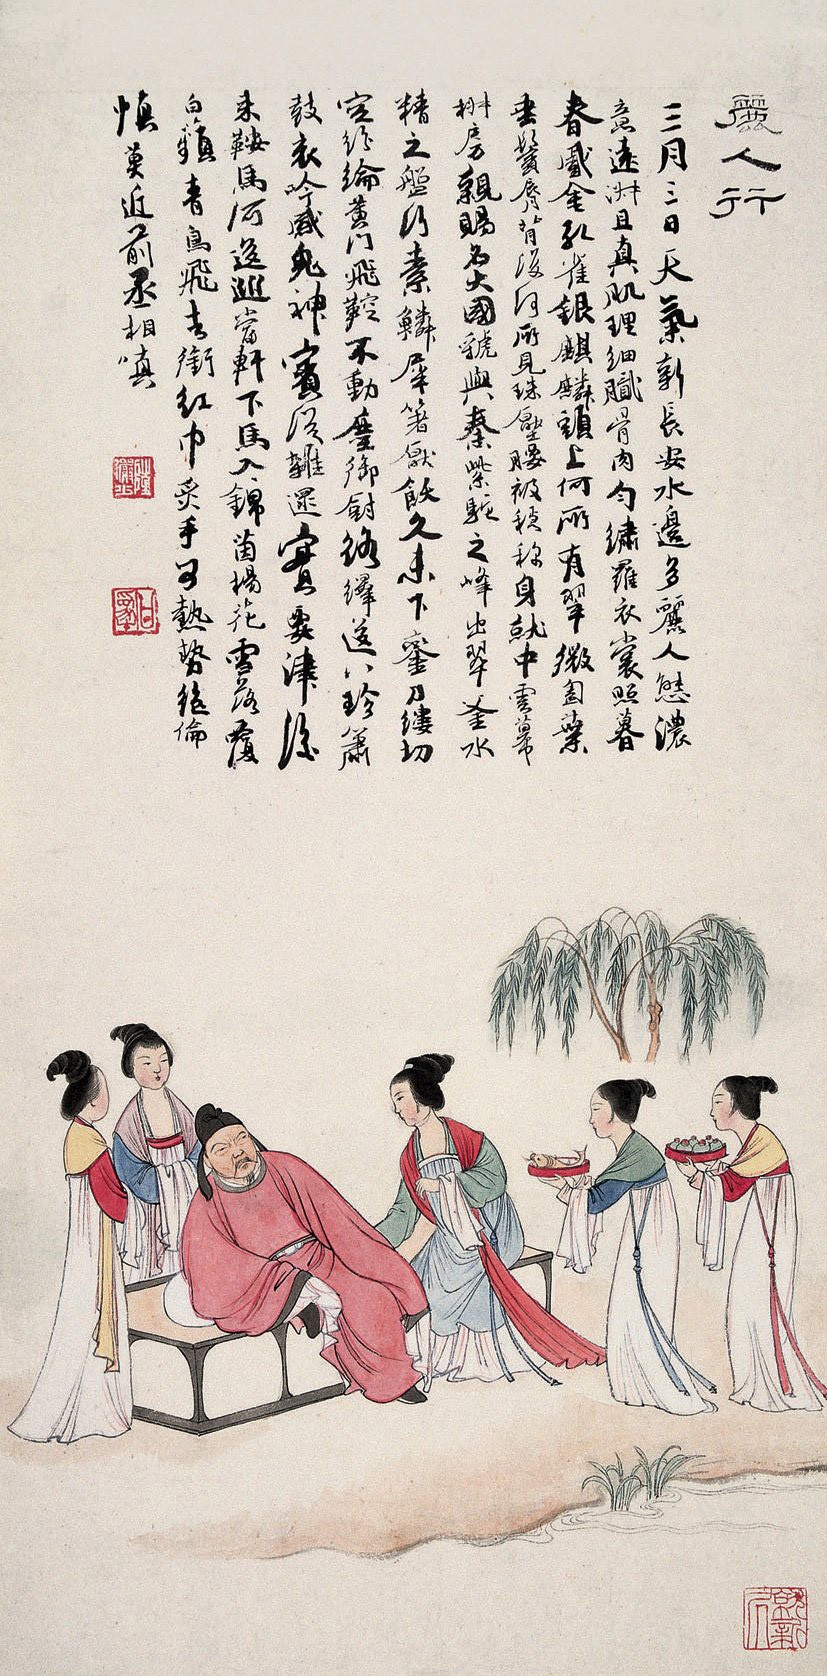 麗人行
三月三日天氣新長安水邊多麗人態濃
意遠淑且真肌理細膩骨肉勻繡羅衣裳照暮
春蹙金孔雀銀麒麟頭上何所有翠微㔩葉
垂鬢脣背後何所見珠壓腰衱穩稱身就中雲幕
椒房親賜名大國虢與秦紫駝之峰出翠釜水
精之盤行素鱗犀箸厭飫久未下鑾刀縷切
空紛綸黃門飛鞚不動塵御厨絡繹送八珍簫
鼓哀吟感鬼神賓從雜遝實要津後
來鞍馬何逡巡當軒下馬入錦茵楊花雪落覆
白蘋青鳥飛去銜紅巾炙手可熱勢絕倫
慎莫近前丞相嗔